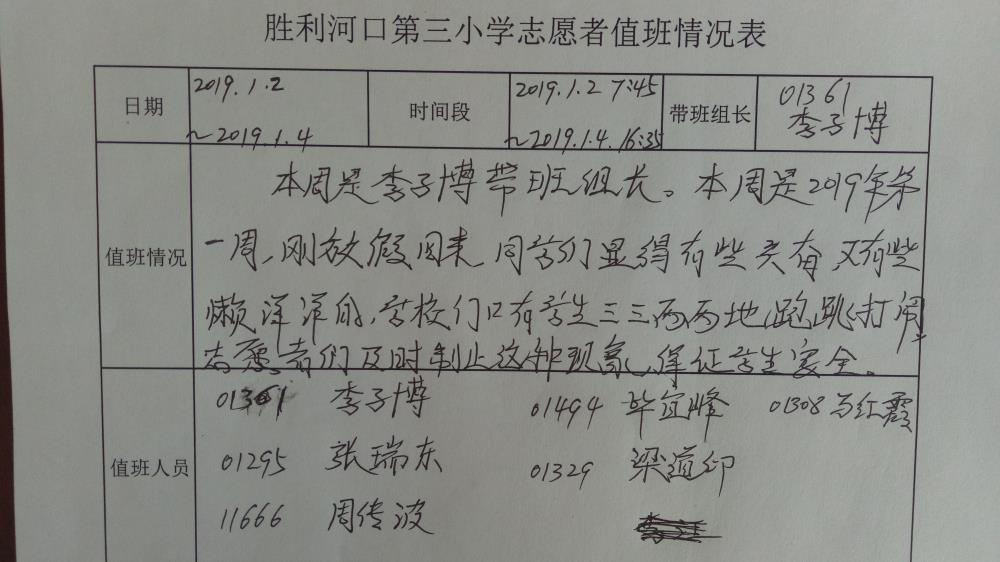 胜利河口第三小学志愿者值班情况表
日期 2019.1.2 ~2019.1.4 时间段 2019.1.2 7:45 ~2019.1.4. 16:35 带班组长 01361 李子博
值班情况
本周是李子博带班组长。本周是2019年第
一周,刚放假回来,同学们显得有些兴奋,又有些
懒洋洋的,学校门口有学生三三两两地跑跳打闹
志愿者们及时制止这种现象,保证学生安全。
值班人员
01361 李子博 01494 毕宜峰 01308 马红霞
01295 张瑞东 01329 梁道印
11666 周传波